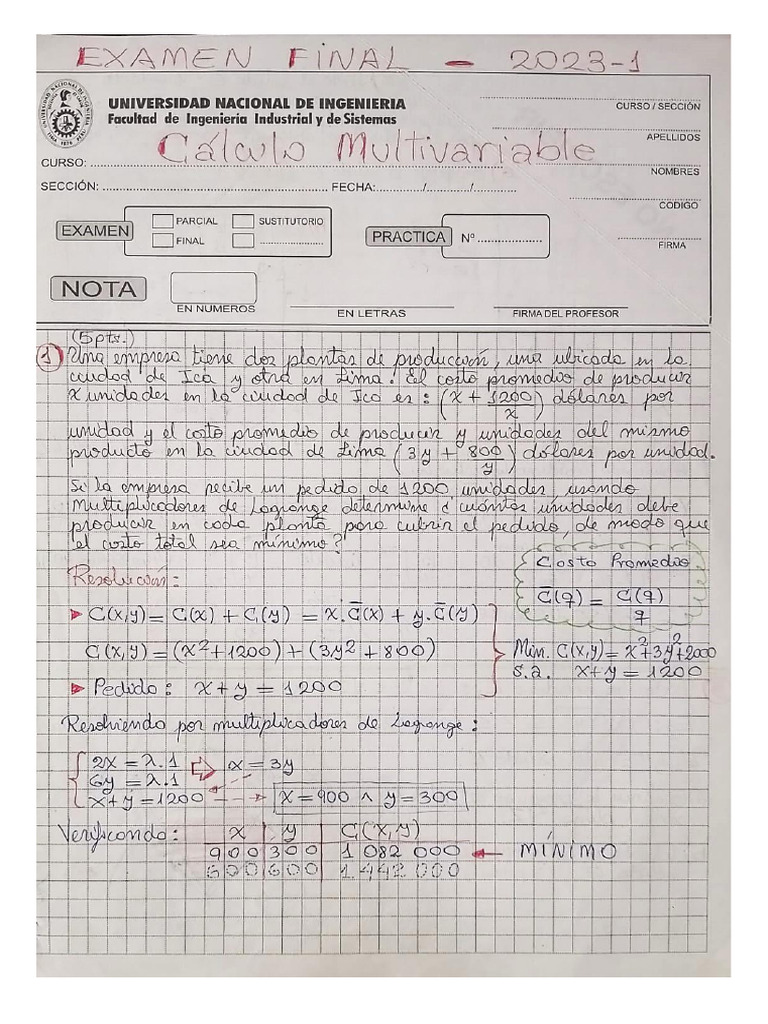 EXAMEN FINAL - 2023-1
UNIVERSIDAD NACIONAL DE INGENIERIA
Facultad de Ingeniería Industrial y de Sistemas
CURSO / SECCIÓN
APELLIDOS
CURSO: Cálculo Multivariable
NOMBRES
SECCIÓN: FECHA: / /
CODIGO
EXAMEN PARCIAL SUSTITUTORIO
FINAL
PRACTICA Nº
FIRMA
NOTA
EN NUMEROS EN LETRAS FIRMA DEL PROFESOR
(5pts.)
1) Una empresa tiene dos plantas de producción, una ubicada en la
ciudad de Ica y otra en Lima. El costo promedio de producir
x unidades en la ciudad de Ica es: (x + 1200/x) dólares por
unidad y el costo promedio de producir y unidades del mismo
producto en la ciudad de Lima (3y + 800/y) dólares por unidad.
Si la empresa recibe un pedido de 1200 unidades, usando
multiplicadores de Lagrange determine ¿cuántas unidades debe
producir en cada planta para cubrir el pedido, de modo que
el costo total sea mínimo?
Costo Promedio
C̄(q) = C(q)/q
Resolución:
► C(x,y) = C(x) + C(y) = x.C̄(x) + y.C̄(y)
C(x,y) = (x²+1200) + (3y² + 800)
► Pedido: x + y = 1200
Min. C(x,y) = x²+3y²+2000
s.a. x+y = 1200
Resolviendo por multiplicadores de Lagrange:
2x = λ.1 ⇒ x = 3y
6y = λ.1
x+y = 1200 → x = 900 ∧ y = 300
Verificando: x y C(x,y)
900 300 1 082 000 ← MÍNIMO
600 600 1 442 000